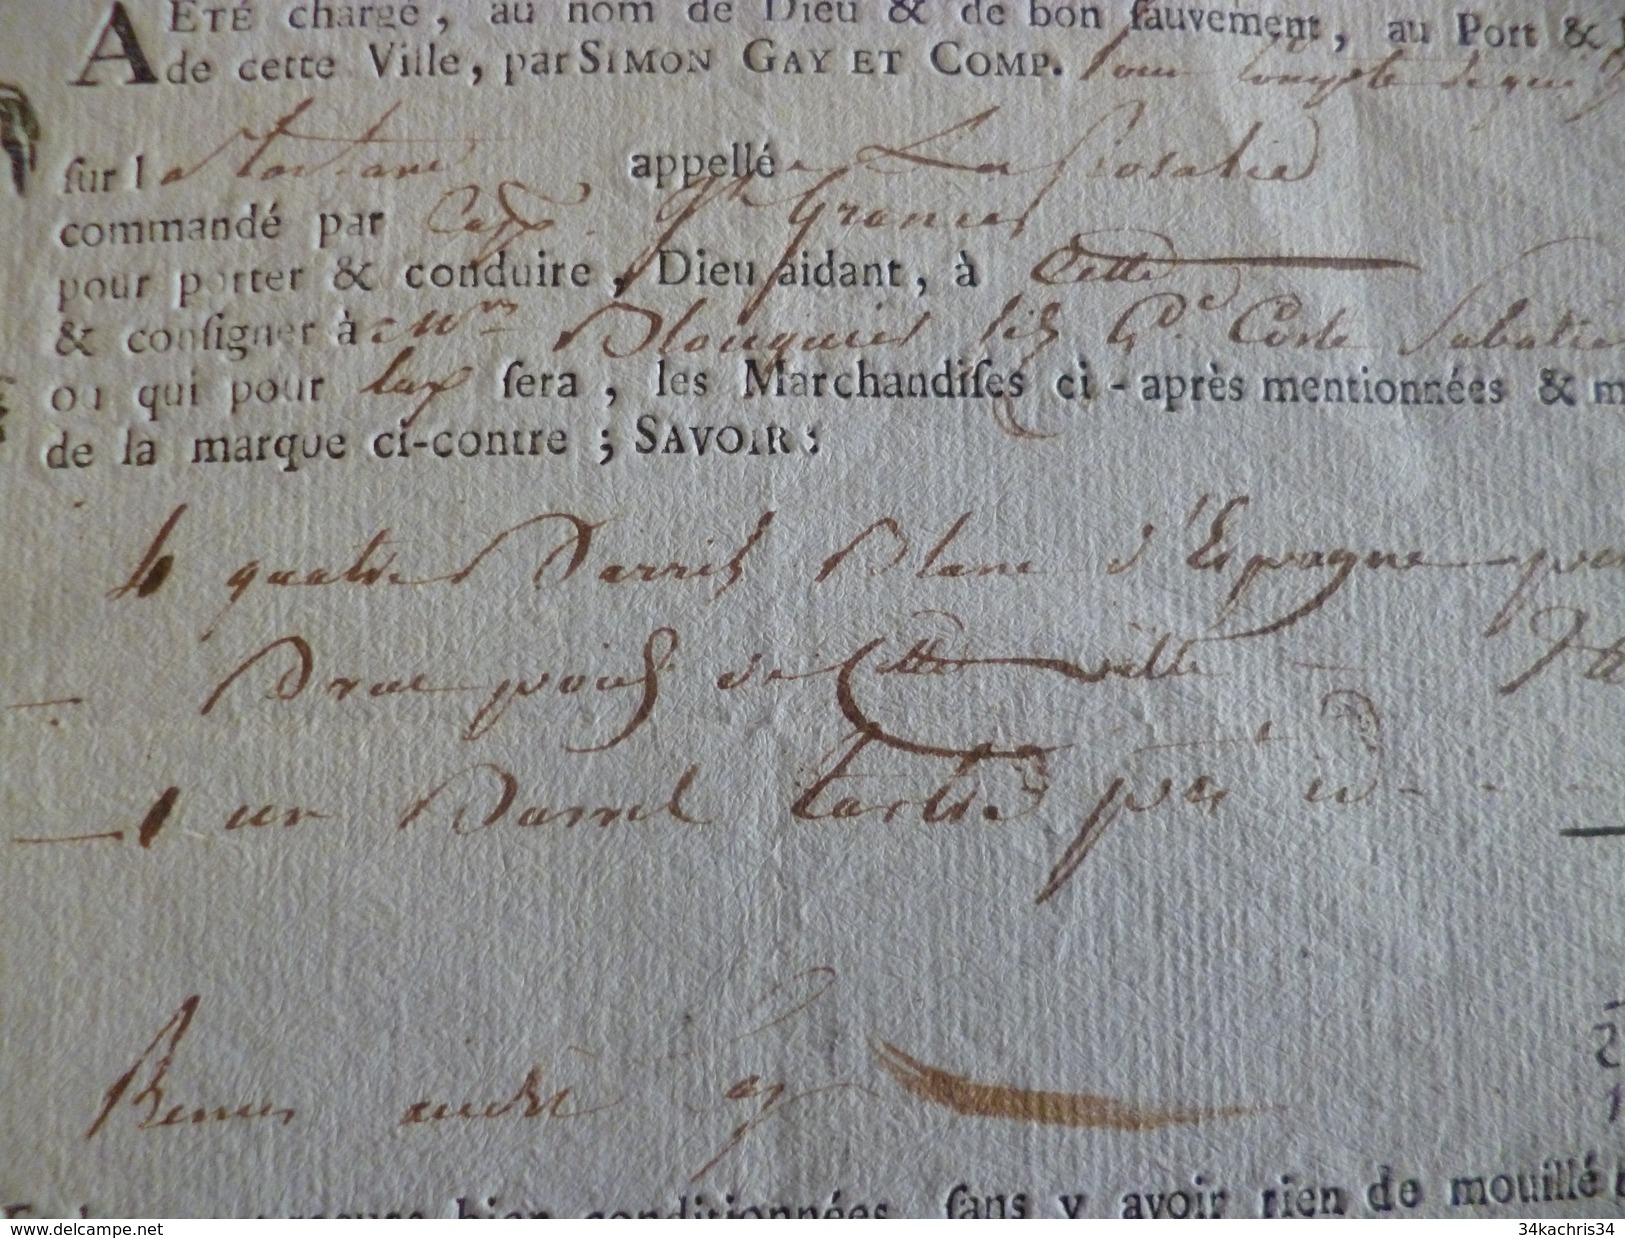 A ÉTÉ chargé, au nom de Dieu & de bon ſauvement, au Port &
de cette Ville, par SIMON GAY ET COMP. pour Compte de qui
ſur la Tartane appellé La Rosalie
commandé par Cap. Granier
pour porter & conduire, Dieu aidant, à Cette
& conſigner à Mrs Blouquier fils Gd. Coste Sabatier
ou qui pour eux ſera, les Marchandiſes ci-après mentionnées & m
de la marque ci-contre; SAVOIR:
4 quatre Barrils Blanc d'Espagne
Brut poids de Cette ville
1 un Barril tartre
2
andré
bien conditionnées, ſans y avoir rien de mouillé
www.delcampe.net
34kachris34